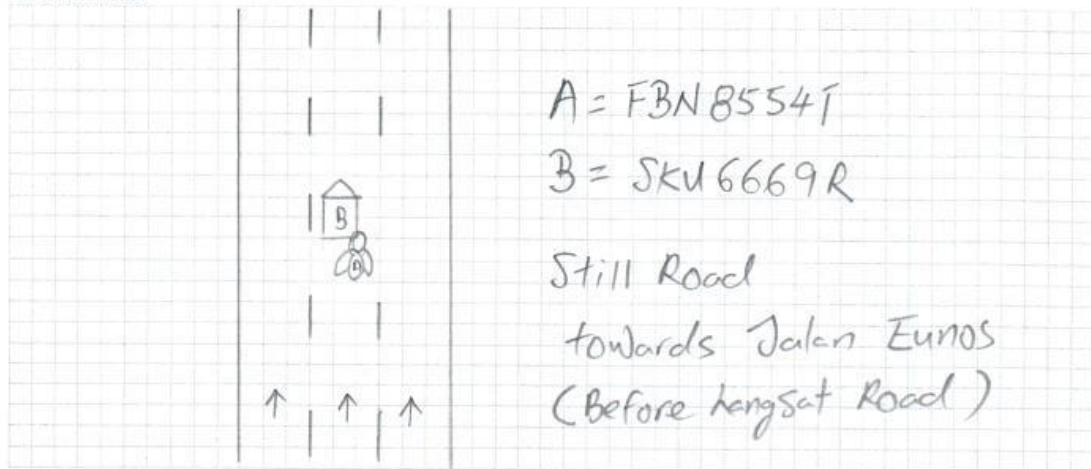 A = FBN8554T
B = SKU6669R
B
A
Still Road
towards Jalan Eunos
(Before Langsat Road)